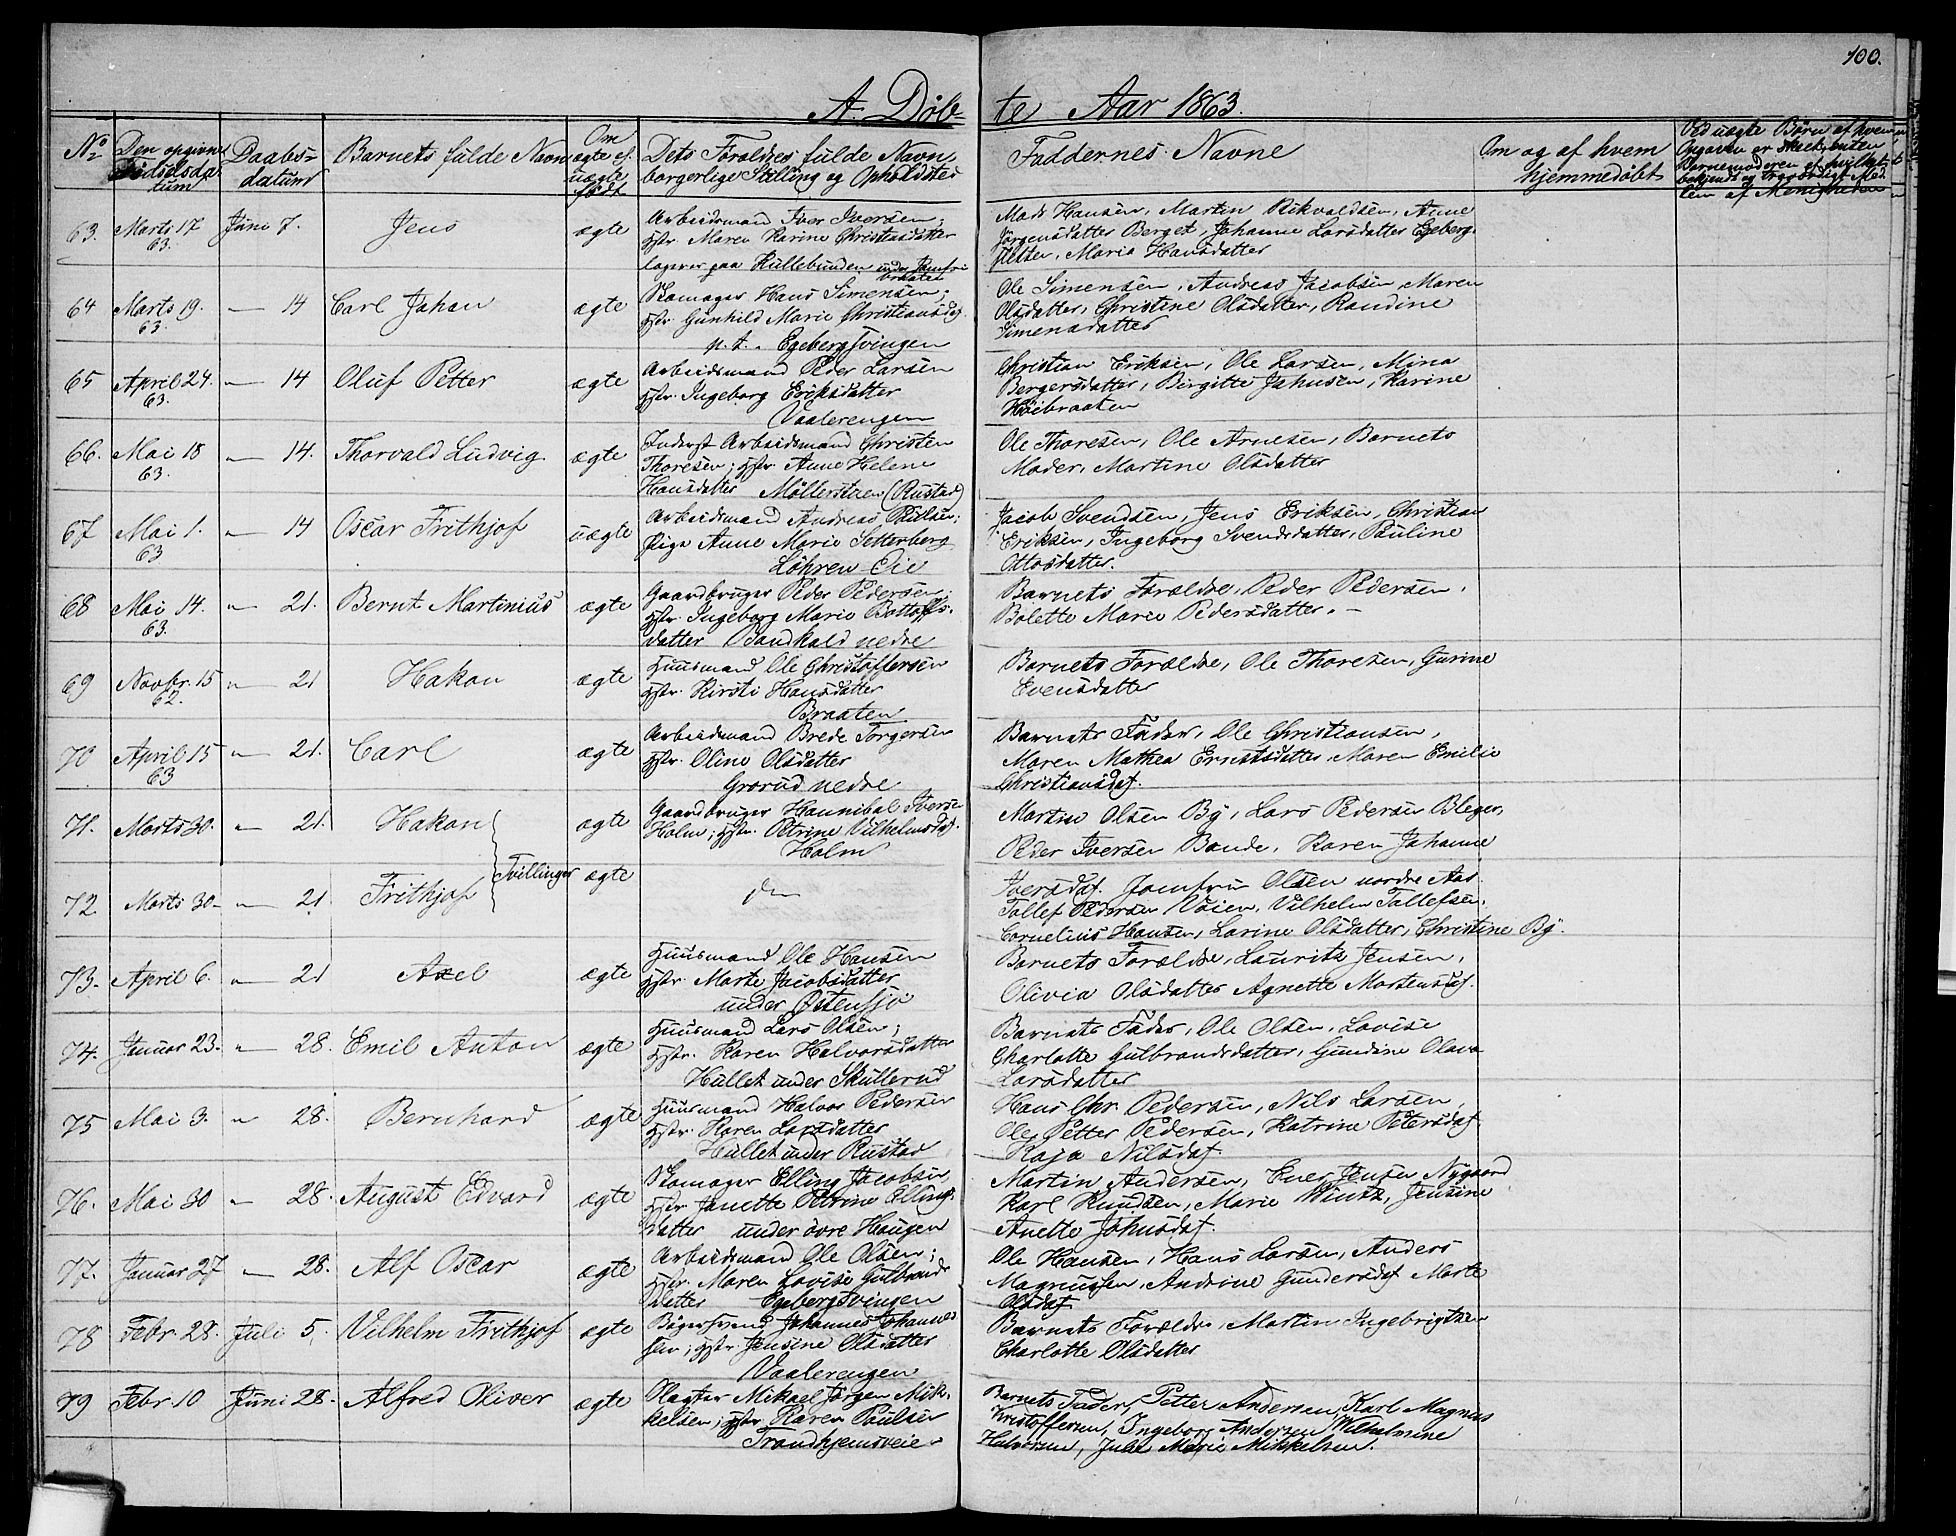 100.
A. Døb-te Aar 1863.
No Den opgivne Fødselsdatum Daabsdatum Barnets fulde Navn Om ægte el. uægte født Dets Forældres fulde Navn, borgerlige Stilling og Opholdsted Faddernes Navne Om og af hvem hjemmedøbt Ved uægte Børn af hvem Opgaven er skeet, enten Barnemoderen el. hvilket bekjendt og troværdigt Medlem af Menigheden
63. Marts 17 63. Juni 7. Jens ægte Arbeidsmand Iver Iversen;
Hstr. Maren Karine Christiansdatter
logerer paa Kullebunden under
Mads Hansen, Martin Rikvaldsen, Anne
Jørgensdatter Berget, Johanne Larsdatter Egeberg-
sletten, Maria Hansdatter
64 Marts 19. 63. — 14 Carl Johan ægte Skomager Hans Simensen;
Hstr. Gunhild Marie Christiansdat.
p.t. Egebergsvingen
Ole Simensen, Andreas Jacobsen, Maren
Olsdatter, Christine Olsdatter, Randine
Simensdatter
65 April 24. 63. — 14 Oluf Petter ægte Arbeidsmand Peder Larsen
Hstr. Ingeborg Eriksdatter
Vaalerengen
Christian Eriksen, Ole Larsen, Mina
Bergersdatter, Birgitte Johnsen, Karine
Høibraaten
66. Mai 18 63. — 14. Thorvald Ludvig ægte Inderst Arbeidsmand Christen
Thoresen; Hstr Anne Helene
Hansdatter Møllerstuen (Rustad)
Ole Thoresen, Ole Arnesen, Barnets
Moder, Martine Olsdatter
67 Mai 1. 63 — 14 Oscar Frithjof uægte Arbeidsmand Andreas Paulsen;
Pige Anne Marie Setterberg
Løhren Eie
Jacob Svendsen, Jens Eriksen, Christian
Eriksen, Ingeborg Svendsdatter, Pauline
Ottosdatter.
68 Mai 14. 63. " 21. Bernt Martinius ægte Gaardbruger Peder Pedersen;
Hstr. Ingeborg Marie Bottolfs-
datter Bankald nedre
Barnets Forældre, Peder Pedersen,
Bolette Marie Pedersdatter. —
69 Novbr. 15 62. " 21 Hakon ægte Huusmand Ole Christoffersen
Hstr. Kirsti Hansdatter
Braaten
Barnets Forældre, Ole Thoresen, Gurine
Evensdatter
70 April 15 63 " 21. Carl ægte Arbeidsmand Brede Torgersen
Hstr. Oline Olsdatter
Grorud nedre
Barnets Fader, Ole Christiansen,
Maren Mathea Ernstsdatter, Maren Emilie
Christiansdat.
71. Marts 30. " 21. Hakon ægte Gaardbruger Hannibal Iversen
Holm; Hstr. Petrine Vilhelmsdat.
Holm
Martin Olsen By, Lars Pedersen Bleger,
Peder Iversen Bonde, Karen Johanne
Tvillinger
72 Marts 30 " 21 Frithjof ægte do
Iversdat. Jomfru Olsen nordre Aas.
Tollef Pedersen Voien, Vilhelm Tollefsen,
Cornelius Hansen, Larine Olsdatter, Christine By.
73. April 6. " 21 Axel ægte Huusmand Ole Hansen
Hstr. Marte Jacobsdatter
under Østensjø
Barnets Forældre, Lauritz Jensen,
Olivia Olsdatter Agnette Mortensdat.
74. Januar 23. " 28. Emil Anton ægte Huusmand Lars Olsen;
Hstr. Karen Halvorsdatter
Hullet under Skullerud
Barnets Fader, Ole Olsen, Lovise
Charlotte Gulbrandsdatter, Gundine Olava
Larsdatter
75 Mai 3. " 28. Bernhard ægte Huusmand Halvor Pedersen
Hstr. Karen Larsdatter
Hullet under Rustad
Hans Chr. Pedersen, Nils Larsen,
Ole Petter Pedersen, Katrine Petersdat.
Kaja Nilsdat.
76. Mai 30 " 28. August Edvard ægte Skomager Elling Jacobsen
Hstr Janette Petrine Ellings-
datter under øvre Haugen
Martin Andersen, Ener Jensen Nygaard
Karl Knudsen, Marie Wintz, Jensine
Anette Johnsdat.
77. Januar 27 — 28. Alf Oscar ægte Arbeidsmand Ole Olsen;
Hstr. Maren Lovise Gulbrands-
datter Egebergsvingen
Ole Hansen, Hans Larsen, Anders
Magnussen, Andrine Gundersdat Marte
Olsdat.
78 Febr. 28. Juli 5, Vilhelm Frithjof ægte Johannes Johannes-
sen; Hstr. Jensine Olsdatter
Vaalerengen
Barnets Forældre, Martin Ingebrigtsen
Charlotte Olsdatter
79 Febr. 10 Juni 28. Alfred Oliver ægte Slagter Mikael Jørgen Mik-
kelsen; Hstr Karen Poulsen
Trondhjemsveien
Barnets Fader, Petter Andersen, Karl Magnus
Kristoffersen, Ingeborg Andersen Wilhelmine
Halvorsen, Julie Marie Mikkelsen.